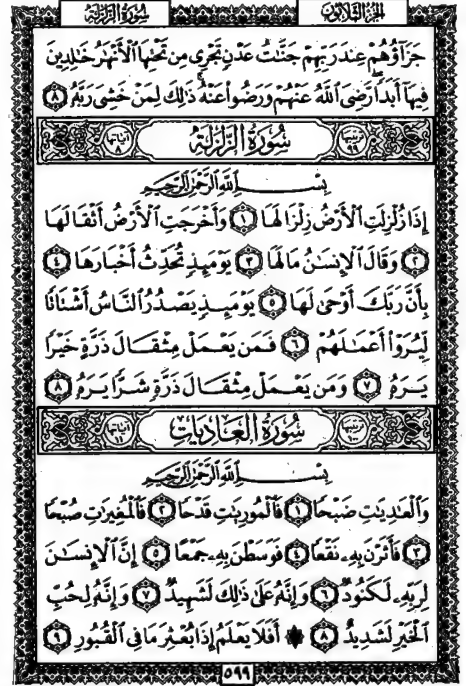 الجزء الثلاثون
سورة الزلزلة
جَزَاؤُهُمْ عِندَ رَبِّهِمْ جَنَّٰتُ عَدْنٍ تَجْرِى مِن تَحْتِهَا ٱلْأَنْهَٰرُ خَٰلِدِينَ
فِيهَآ أَبَدًا ۖ رَّضِىَ ٱللَّهُ عَنْهُمْ وَرَضُوا۟ عَنْهُ ۚ ذَٰلِكَ لِمَنْ خَشِىَ رَبَّهُۥ ٨
ترتيبها ٩٩ سُورَةُ الزَّلْزَلَةِ آياتها ٨
بِسْمِ ٱللَّهِ ٱلرَّحْمَٰنِ ٱلرَّحِيمِ
إِذَا زُلْزِلَتِ ٱلْأَرْضُ زِلْزَالَهَا ١ وَأَخْرَجَتِ ٱلْأَرْضُ أَثْقَالَهَا
٢ وَقَالَ ٱلْإِنسَٰنُ مَا لَهَا ٣ يَوْمَئِذٍ تُحَدِّثُ أَخْبَارَهَا ٤
بِأَنَّ رَبَّكَ أَوْحَىٰ لَهَا ٥ يَوْمَئِذٍ يَصْدُرُ ٱلنَّاسُ أَشْتَاتًا
لِّيُرَوْا۟ أَعْمَٰلَهُمْ ٦ فَمَن يَعْمَلْ مِثْقَالَ ذَرَّةٍ خَيْرًا
يَرَهُۥ ٧ وَمَن يَعْمَلْ مِثْقَالَ ذَرَّةٍ شَرًّا يَرَهُۥ ٨
ترتيبها ١٠٠ سُورَةُ العَادِيَاتِ آياتها ١١
بِسْمِ ٱللَّهِ ٱلرَّحْمَٰنِ ٱلرَّحِيمِ
وَٱلْعَٰدِيَٰتِ ضَبْحًا ١ فَٱلْمُورِيَٰتِ قَدْحًا ٢ فَٱلْمُغِيرَٰتِ صُبْحًا
٣ فَأَثَرْنَ بِهِۦ نَقْعًا ٤ فَوَسَطْنَ بِهِۦ جَمْعًا ٥ إِنَّ ٱلْإِنسَٰنَ
لِرَبِّهِۦ لَكَنُودٌ ٦ وَإِنَّهُۥ عَلَىٰ ذَٰلِكَ لَشَهِيدٌ ٧ وَإِنَّهُۥ لِحُبِّ
ٱلْخَيْرِ لَشَدِيدٌ ٨ ۞ أَفَلَا يَعْلَمُ إِذَا بُعْثِرَ مَا فِى ٱلْقُبُورِ ٩
٥٩٩